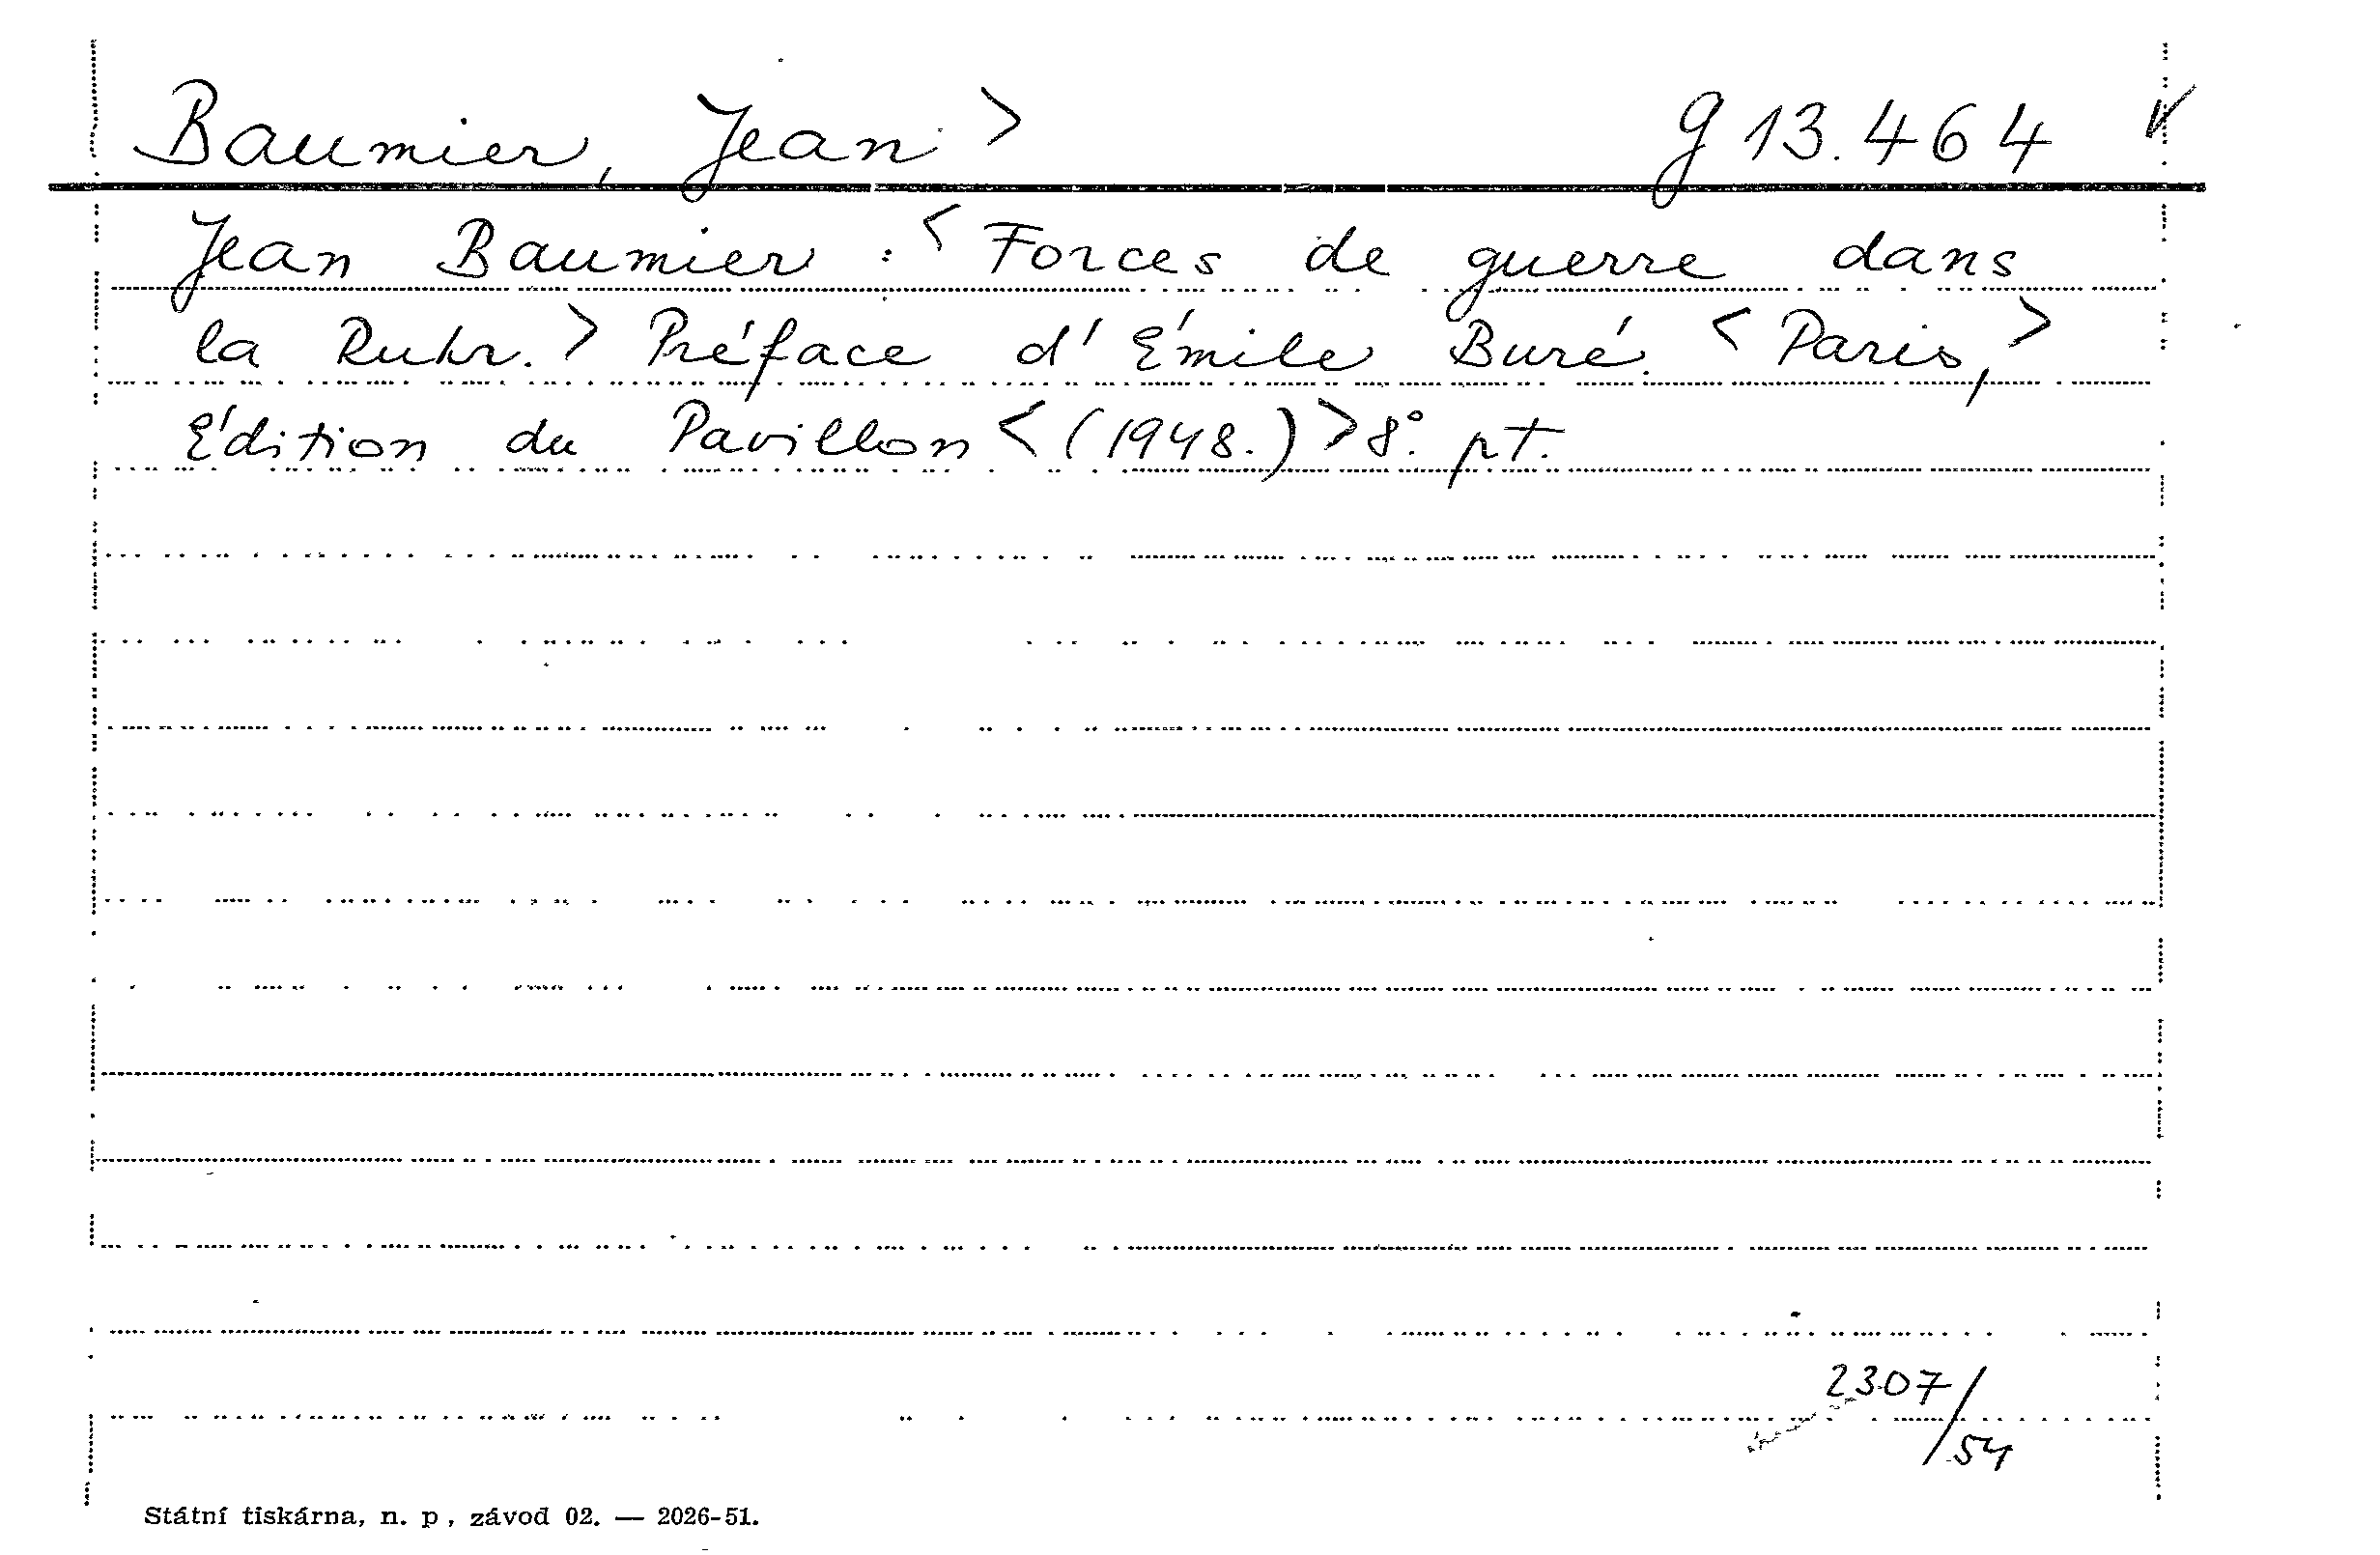 Baumier, Jean > g 13.464 √
Jean Baumier : < Forces de guerre dans
la Ruhr. > Préface d' Émile Buré. < Paris, >
Édition du Pavillon < (1948.) > 8° pt.
2307/54
Státní tiskárna, n. p., závod 02. — 2026-51.